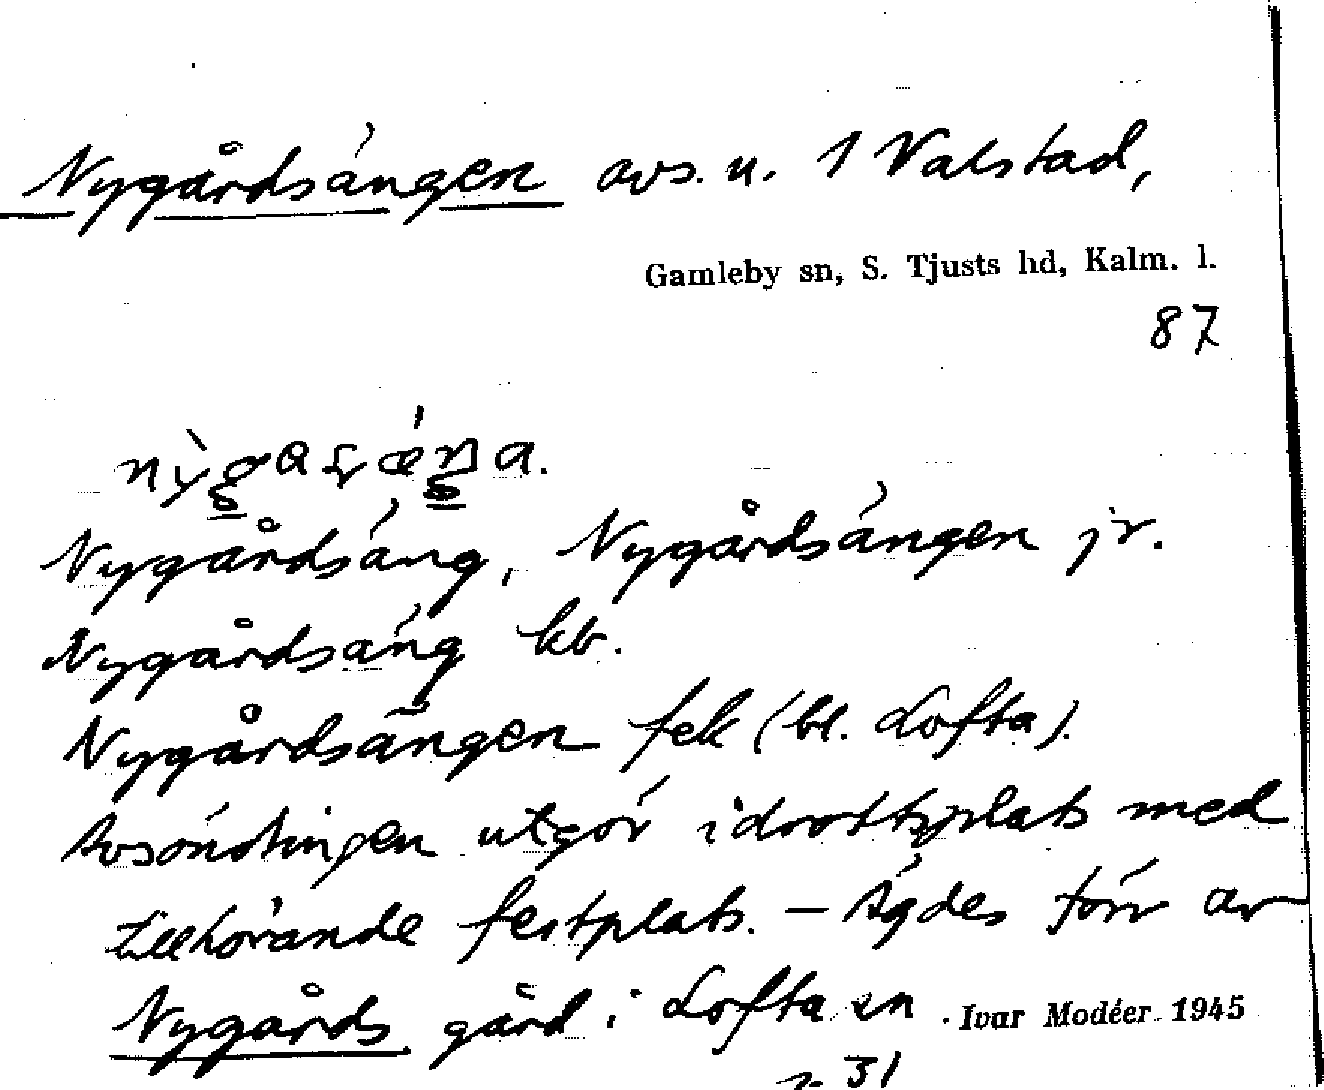 Nygårdsängen avs. u. 1 Valstad,
Gamleby sn, S. Tjusts hd, Kalm. l.
87
Nygårdsäng, Nygårdsängen jr.
Nygårdsäng kb.
Nygårdsängen fek (bl. Lofta).
Avsöndringen utgör idrottsplats med
tillhörande festplats. – Ägdes förr av
Nygårds gård i Lofta sn. Ivar Modéer 1945
31